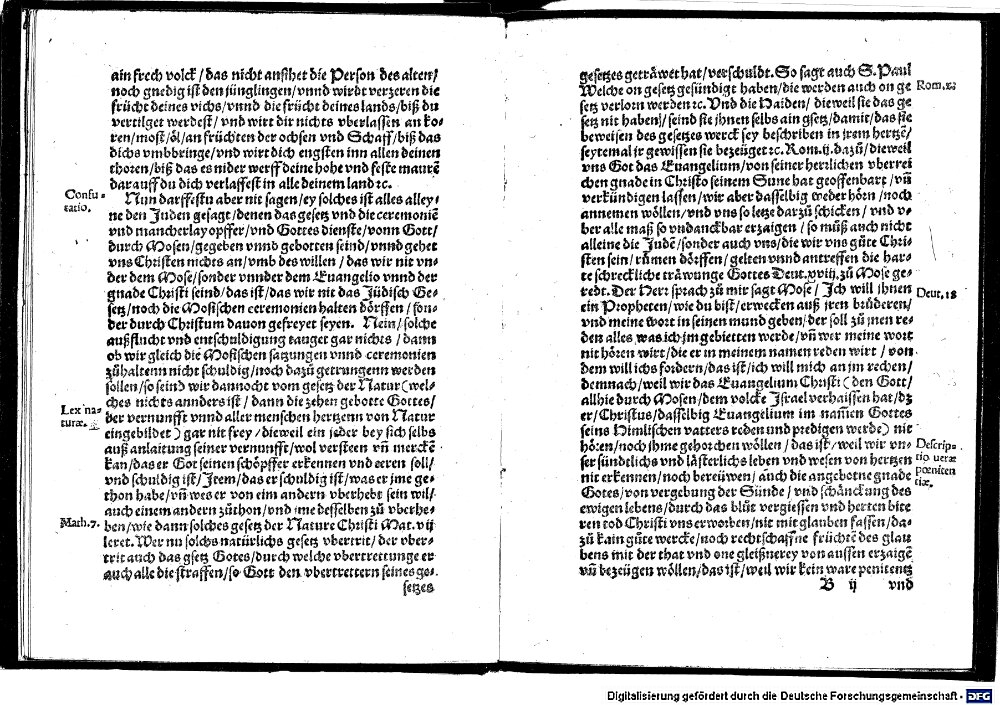 ain frech volck / das nicht ansihet die Person des alten /
noch gnedig ist den jünglingen / vnnd wirdt verzeren die
frücht deines vichs / vnnd die frücht deines lands / biß du
vertilget werdest / vnd wirt dir nichts vberlassen an ko-
ren / most / öl / an früchten der ochsen vnd Schaff / biß das
dichs vmbbringe / vnd wirt dich engsten inn allen deinen
thoren / biß das es nider werff deine hohe vnd feste maurē
darauff du dich verlassest in alle deinem land ꝛc.
Confu-
tatio.
Nun darffestu aber nit sagen / ey solches ist alles alley-
ne den Juden gesagt / denen das gesetz vnd die ceremoniē
vnd mancherlay opffer / vnd Gottes dienste / vonn Gott /
durch Mosen / gegeben vnnd gebotten seind / vnnd gehet
vns Christen nichts an / vmb des willen / das wir nit vn-
der dem Mose / sonder vnnder dem Euangelio vnnd der
gnade Christi seind / das ist / das wir nit das Jüdisch Ge-
setz / noch die Mosischen ceremonien halten dörffen / son-
der durch Christum dauon gefreyet seyen. Nein / solche
außflucht vnd entschuldigung tauget gar nichts / dann
ob wir gleich die Mosischen satzungen vnnd ceremonien
zůhaltenn nicht schuldig / noch dazů getrungenn werden
sollen / so sein wir dannocht vom gesetz der Natur (wel-
Lex na-
turæ.
ches nichts annders ist / dann die zehen gebotte Gottes /
der vernunfft vnnd aller menschen hertzenn von Natur
eingebildet) gar nit frey / dieweil ein jeder bey sich selbs
auß anlaitung seiner vernunfft / wol versteen vñ merckē
kan / das er Got seinen schöpffer erkennen vnd eeren soll /
vnd schuldig ist / Item / das er schuldig ist / was er jme ge-
thon habe / vñ wes er von eim andern vberhebt sein wil /
auch einem andern zůthon / vnd jme desselben zů vberhe-
Math. 7.
ben / wie dann solches gesetz der Nature Christi Mat. vij
leret. Wer nu solchs natürlichs gesetz vbertrit / der vber-
trit auch das gsetz Gotes / durch welche vbertrettunge er
auch alle die straffen / so Gott den vbertrettern seines ge-
setzes
gesetzes getråwet hat / verschuldt. So sagt auch S. Paul
Rom. 2:
Welche on gesetz gesündigt haben / die werden auch on ge
setz verlorn werden ꝛc. Vnd die Haiden / dieweil sie das ge
setz nit haben / seind sie jhnen selbs ain gesetz / damit / das sie
beweisen des gesetzes werck sey beschriben in jrem hertzē /
seytemal jr gewissen sie bezeüget ꝛc. Rom. ij. dazů / dieweil
vns Got das Euangelium / von seiner herzlichen vberrei
chen gnade in Christo seinem Sune hat geoffenbart / vñ
verkündigen lassen / wir aber dasselbig weder hörn / noch
annemen wöllen / vnd vns so letze darzů schicken / vnd v-
ber alle maß so vndanckbar erzaigen / so můß auch nicht
alleine die Judē / sonder auch vns / die wir vns gůte Chri-
sten sein / růmen dörffen / gelten vnnd antreffen die har-
te schreckliche tråwunge Gottes Deut. xviij. zů Mose ge-
Deut. 18
redt. Der Herr sprach zů mir sagt Mose / Ich will jhnen
ein Propheten / wie du bist / erwecken auß jren brüderen /
vnd meine wort in seinen mund geben / der soll zů jnen re-
den alles was ich jm gebietten werde / vñ wer meine wort
nit hören wirt / die er in meinem namen reden wirt / von
dem will ichs fordern / das ist / ich will mich an jm rechen /
demnach / weil wir das Euangelium Christi (den Gott /
allhie durch Mosen / dem volcke Israel verhaissen hat / dz
er / Christus / dasselbig Euangelium im nam̃en Gottes
seins Himlischen vatters reden vnd predigen werde) nit
Descrip-
tio veræ
pœniten
tiæ.
hören / noch jhme gehorchen wöllen / das ist / weil wir vn-
ser sündtlichs vnd lästerlichs leben vnd wesen von hertzen
nit erkennen / noch bereüwen / auch die angebotne gnade
Gotes / von vergebung der Sünde / vnd schånckung des
ewigen lebens / durch das blůt vergiessen vnd herten bite
ren tod Christi vns erworben / nit mit glauben fassen / da-
zů kain gůte wercke / noch rechtschaffne früchte des glau
bens mit der that vnd one gleißnerey von aussen erzaigē
vñ bezeügen wöllen / das ist / weil wir kein ware penitentz
B ij vnd
Digitalisierung gefördert durch die Deutsche Forschungsgemeinschaft - DFG